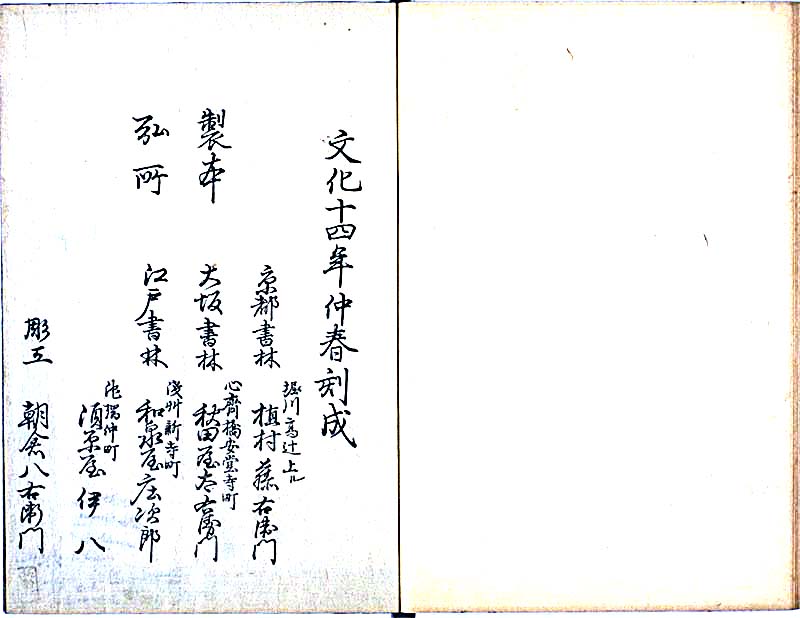 文化十四年仲春刻成
京都書林
堀川高辻上ル
植村藤右衛門
製本
大坂書林
心齋橋安堂寺町
秋田屋太右衛門
弘所
江戸書林
淺艸新寺町
和泉屋庄次郎
池端仲町
須原屋伊八
彫工
朝倉八右衛門